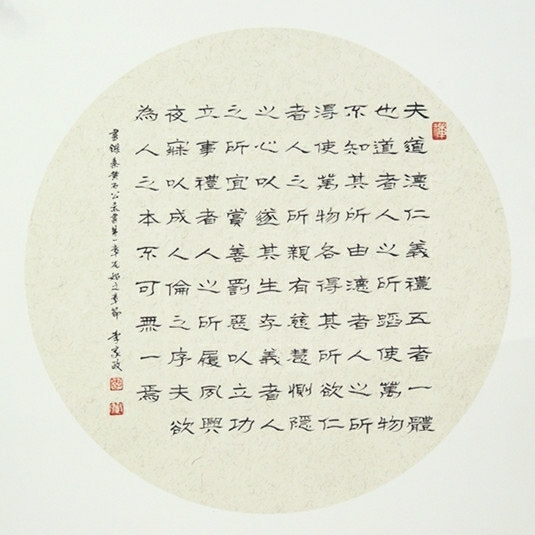 夫道德仁義禮五者一體
也道者人之所蹈使萬物
不知其所由德者人之所
得使萬物各得其所欲仁
者人之所親有慈慧惻隱
之心以遂其生存義者人
之所宜賞善罰惡以立功
立事禮者人之所履夙興
夜寐以成人倫之序夫欲
為人之本不可無一焉
書錄秦黃石公素書第一章原始之章節 李家政